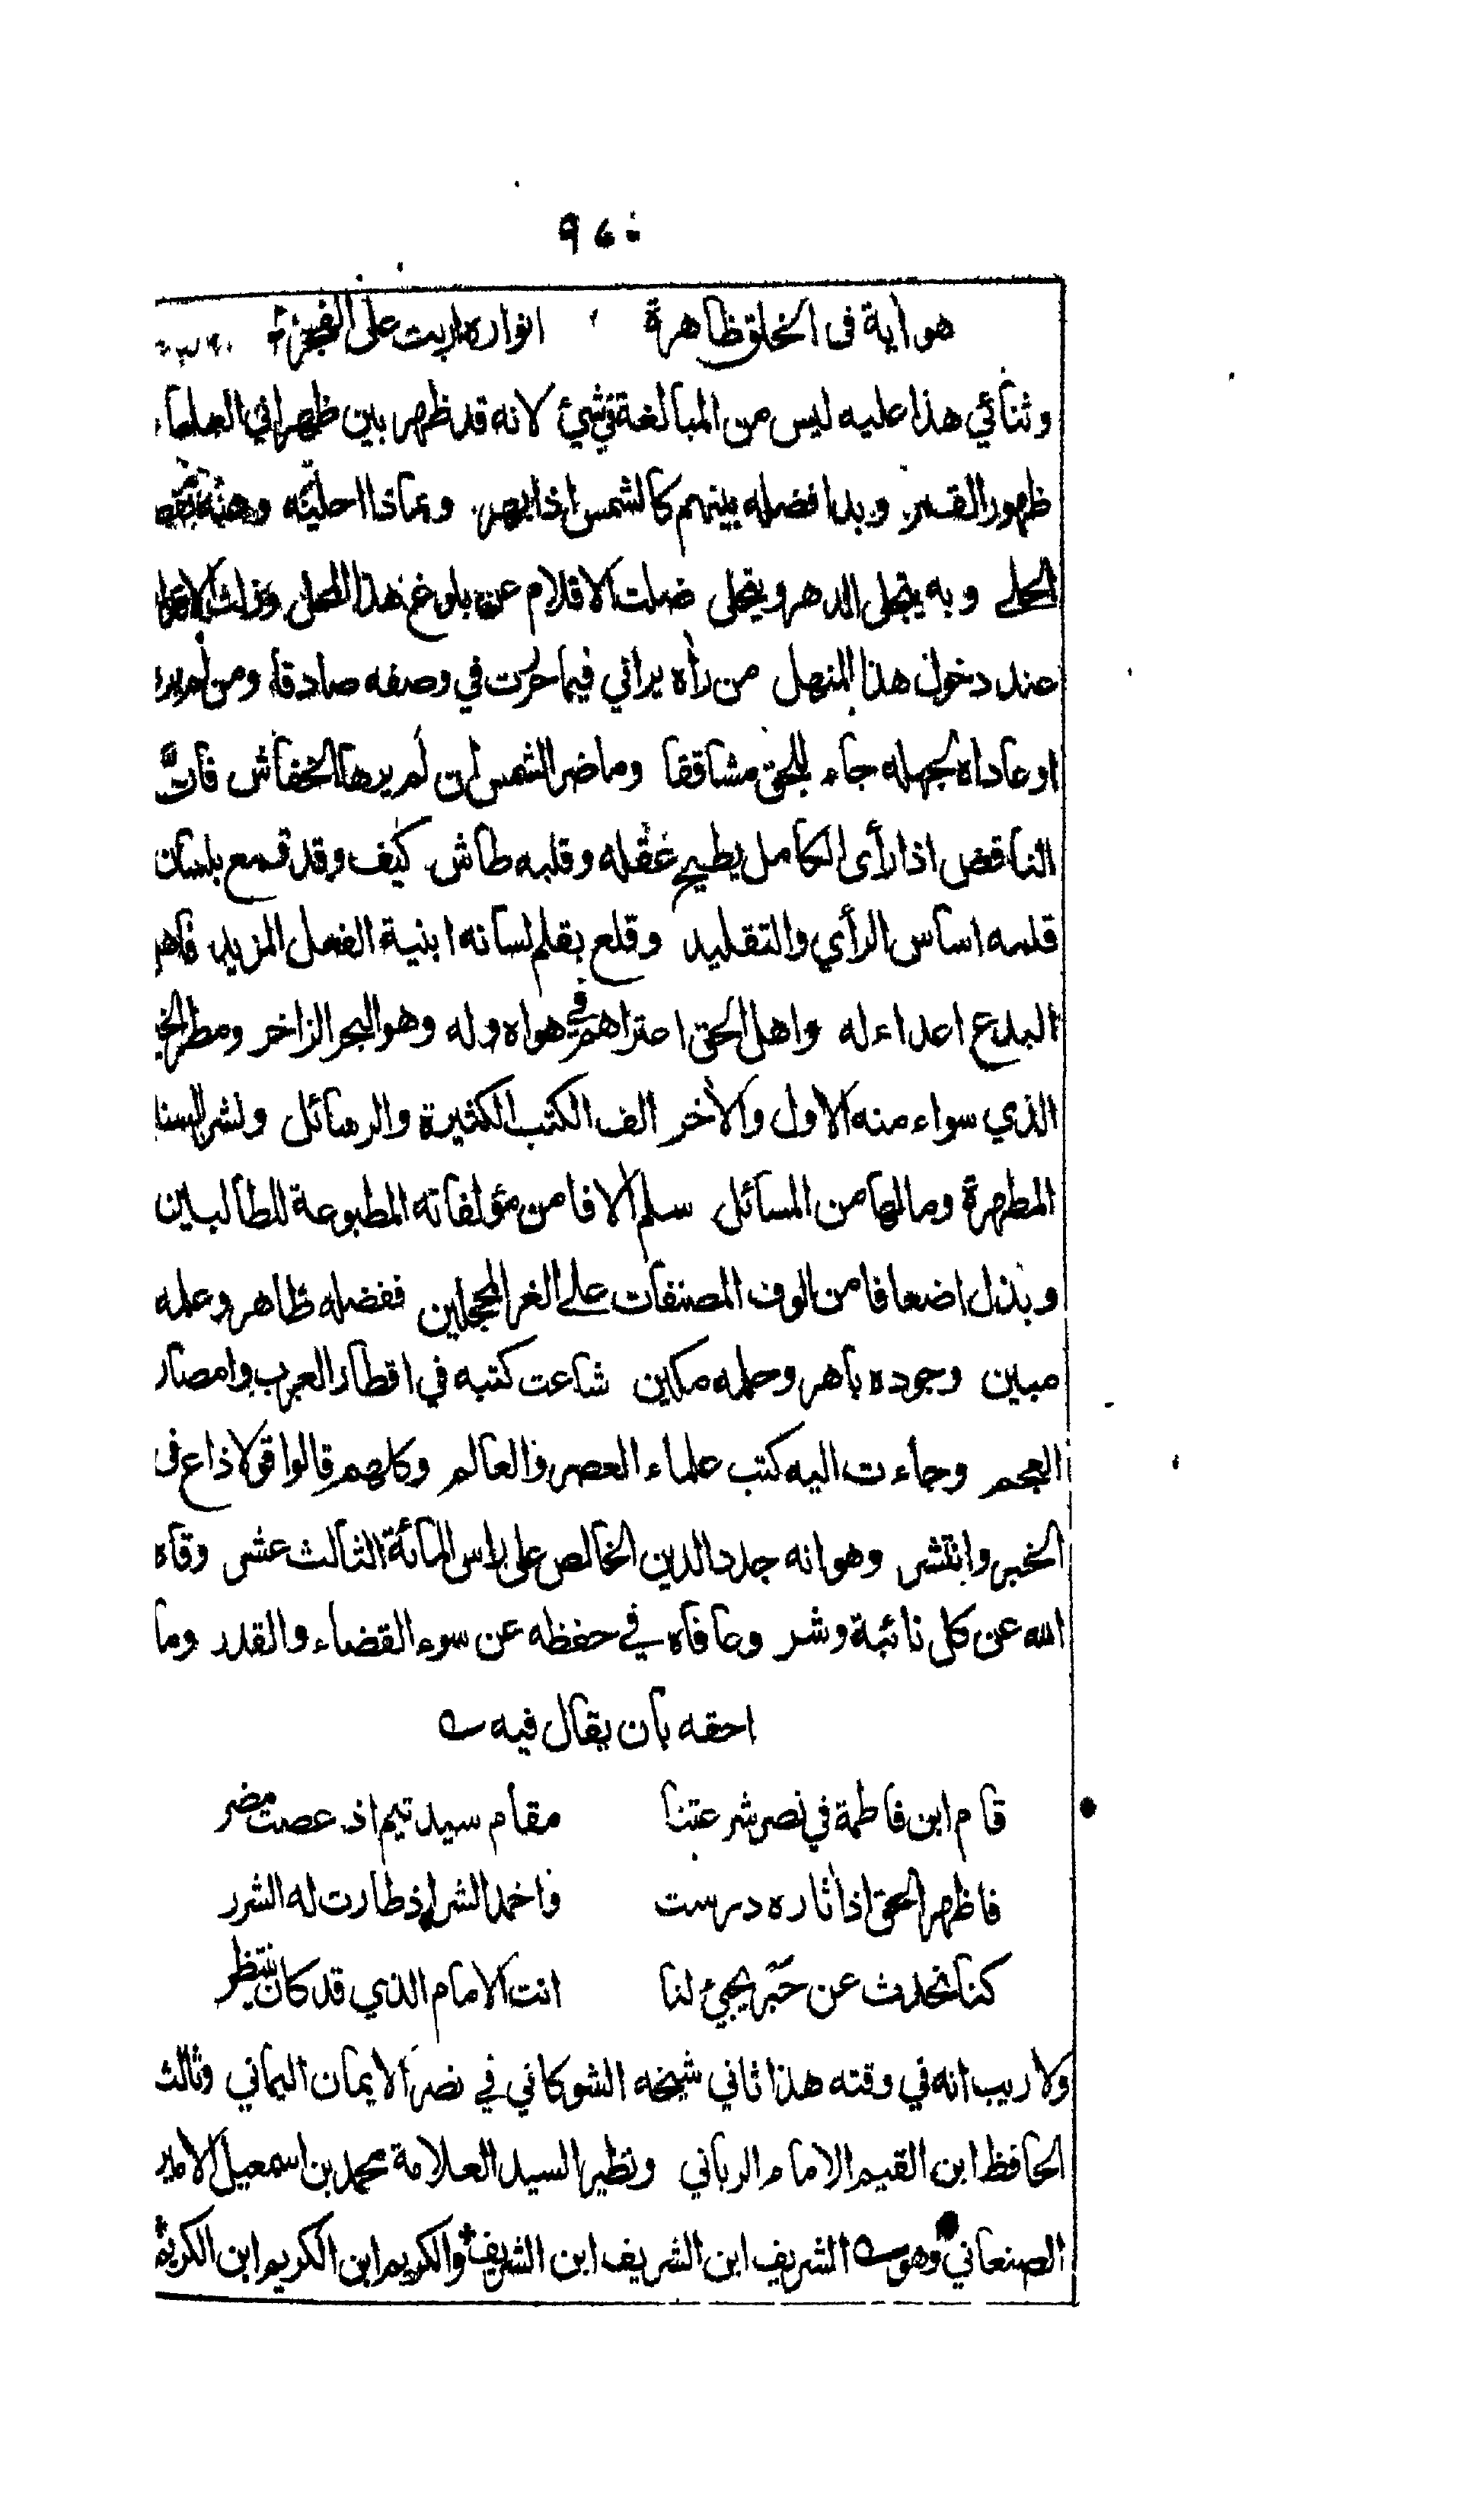 هو اية فى الخلق ظاهرة انواره اربت على الفجر
وثنائي هذا عليه ليس من المبالغة في شئ لانه قد ظهر بين ظهراني العلماء
ظهور القمر وبدا فضله بينهم كالشمس اذا بهر وبماذا احليه
الحلي وبه يتجلى الدهر ويتحلى ضلت الاقلام عن بلوغ هذا المحل
عند دخول هذا المنهل من رأه يراني فيما حررت في وصفه صادقا ومن لم يره
او عاداه لجهله جاء للحق مشاققا وما ضر الشمس ان لم يرها الخفاش فان
الناقص اذا رأى الكامل يطيح عقله وقلبه طاش كيف وقد قمع بلسان
قلمه اساس الرأي والتقليد وقلع بقلم لسانه ابنية الفعل المزيد فاهل
البدع اعداء له واهل الحق اعتراهم في هواه وله وهو البحر الزاخر ومطر الخير
الذي سواء منه الاول والأخر الف الكتب الكثيرة والرسائل ونشر السنة
المطهرة ومالها من المسائل سلم الافا من مؤلفاته المطبوعة للطالبين
وبذل اضعافا من الوف المصنفات على الغر المحجلين ففضله ظاهر وعلمه
مبين وجوده باهر وحلمه مكين شاعت كتبه في اقطار العرب وامصار
العجم وجاءت اليه كتب علماء العصر والعالم وكلهم قالوا قولا ذاع فى
الخبر وانتشر وهو انه جدد الدين الخالص على راس المائة الثالث عشر وقاه
الله عن كل نائبة وشر وعافاه في حفظه عن سوء القضاء والقدر وما
احقه بان يقال فيه
قام ابن فاطمة في نصر شرعتنا مقام سيد تيم اذ عصت مضر
فاظهر الحق اذ اثاره درست واخمد الشر اذ طارت له الشرر
كنا نحدث عن حبر يجئ لنا انت الامام الذي قد كان ينتظر
ولا ريب انه في وقته هذا ثاني شيخه الشوكاني في نصر الايمان اليماني وثالث
الحافظ ابن القيم الامام الرباني ونظير السيد العلامة محمد بن اسمعيل الامير
الصنعاني وهو الشريف ابن الشريف ابن الشريف والكريم ابن الكريم ابن الكريم